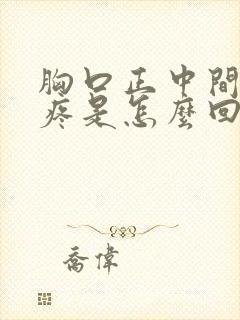 胸口正中間
疼是怎麼回
喬偉